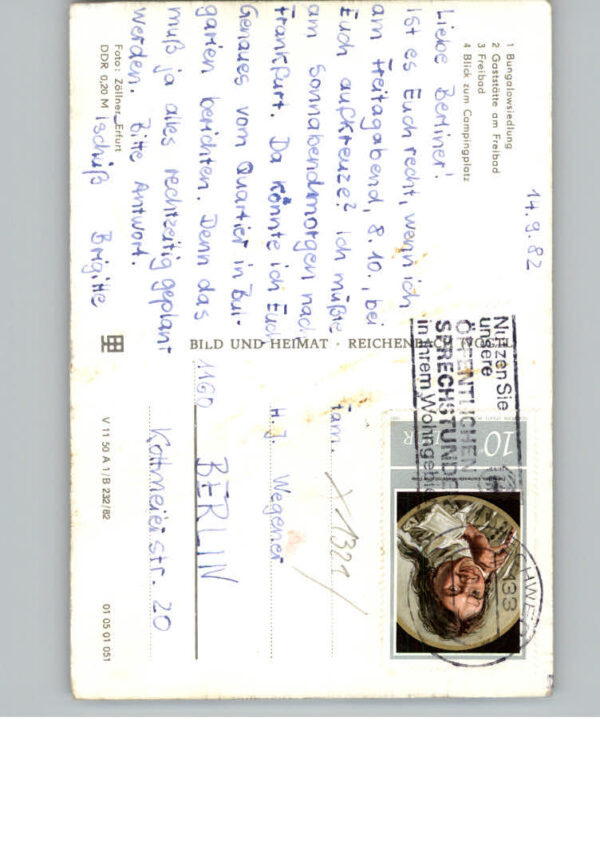 14.9.82
1 Bungalowsiedlung
2 Gaststätte am Freibad
3 Freibad
4 Blick zum Campingplatz
Liebe Berliner!
Ist es Euch recht, wenn ich
am Freitagabend, 8.10., bei
Euch aufkreuze? Ich müßte
am Sonnabendmorgen nach
Frankfurt. Da könnte ich Euch
Genaues vom Quartier in Bul-
garien berichten. Denn das
muß ja alles rechtzeitig geplant
werden. Bitte Antwort.
Tschüß Brigitte
Foto: Zöllner, Erfurt
DDR 0,20 M
BILD UND HEIMAT · REICHENBACH
V 11 50 A 1/B 232/82
01 05 01 051
Nutzen Sie
unsere
ÖFFENTLICHEN
SPRECHSTUNDE
in Ihrem Wohngebiet
10
133
Fam. X 1321
H. J. Wegener
1160 BERLIN
Kottmeierstr. 20